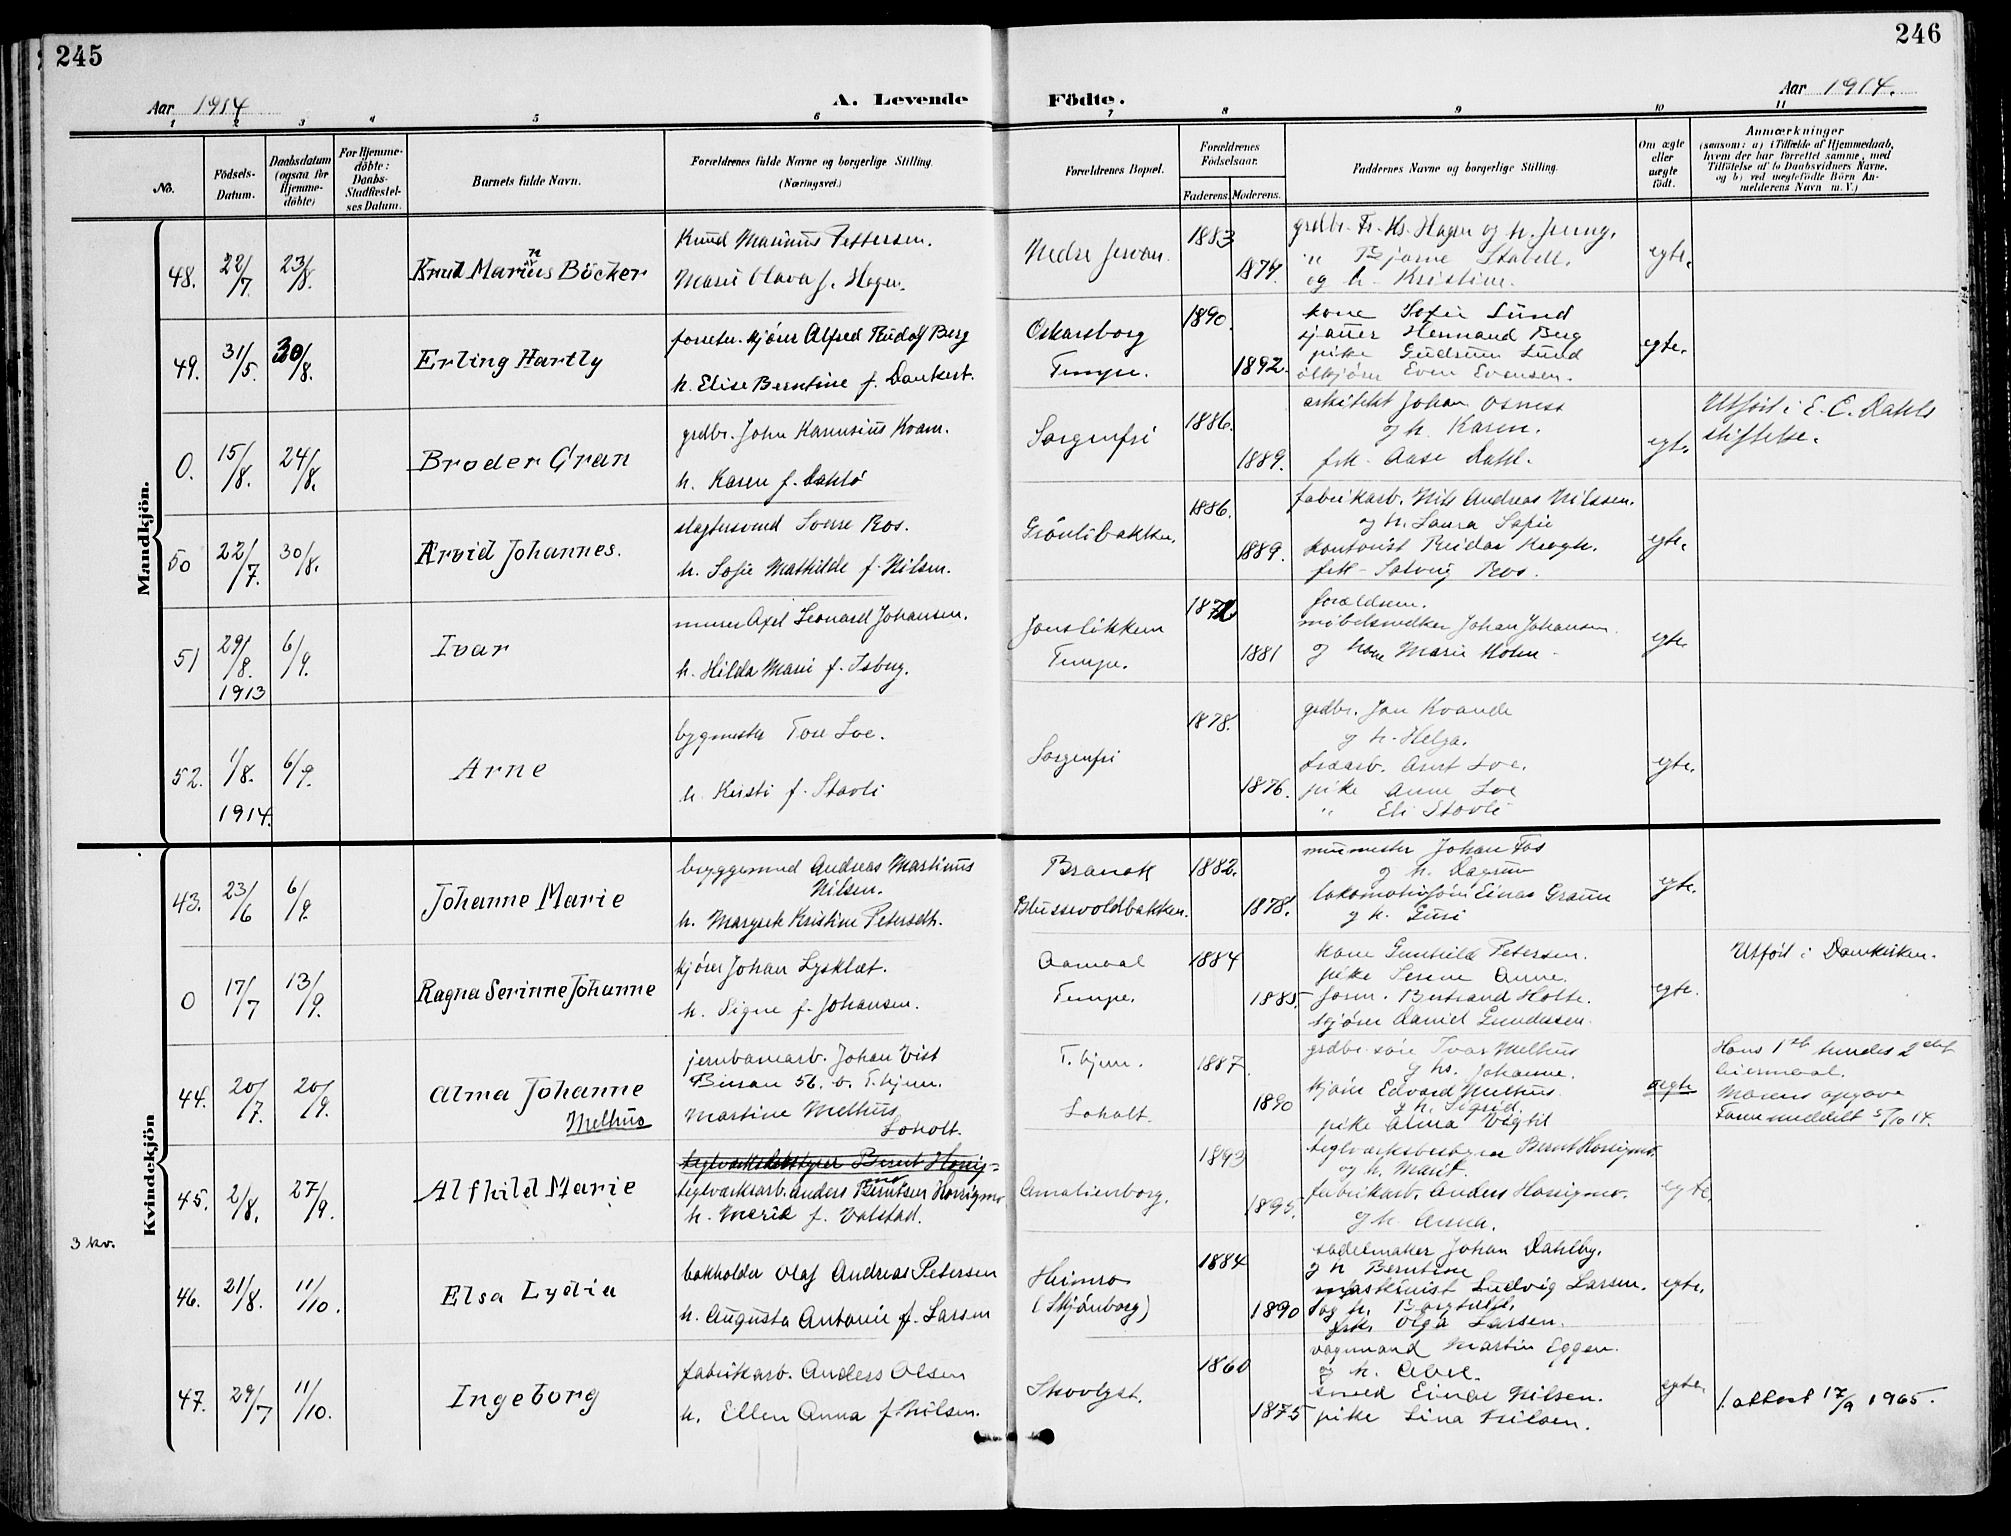 245
246
Aar 1914
A. Levende Födte.
Aar 1914.
1 2 3 4 5 6 7 8 9 10 11
No.
Födsels-
Datum.
Daabsdatum
(ogsaa for
Hjemme-
döbte)
For Hjemme-
döbte:
Daabs-
Stadfæstel-
ses Datum.
Barnets fulde Navn.
Forældrenes fulde Navne og borgerlige Stilling.
(Næringsvei.)
Forældrenes Bopæl.
Forældrenes
Födselsaar.
Faderens. Moderens.
Faddernes Navne og borgerlige Stilling.
Om ægte
eller
uægte
födt.
Anmærkninger
(saasom: a) i Tilfælde af Hjemmedaab,
hvem der har forrettet samme, med
Tilföielse af to Daabsvidners Navne,
og b) ved uegtefödte Börn An-
melderens Navn m. V.)
Mandkjön.
48. 22/7 23/8.
Knud Marius Böcker
n
Knud Marinus Pettersen.
Marie Olava f. Hagen.
Nedre
1883
1874.
grdbr. Fr. Hagen og h.
" Bjarne
og h. Kristine.
egte.
49. 31/5. 30/8.
Erling Hartly
kjörer Alfred Rudolf Berg
h. Elise Berntine f. Dankert.
Oskarsborg
Tempe.
1890.
1892.
kone Sofie Lund
sjauer Hermand Berg
pike Gudrun Lund
ölkjörer Even Evensen.
egte.
0. 15/8. 24/8.
Broder Gran
grdbr. John Rasmusius Kvam.
h. Karen f. Dahlö
Sorgenfri
1886.
1889.
arkitekt Johan Osness
og h. Karen.
frk. Aase Dahl.
egte.
Utförl i E. C. Dahls
stiftelse.
50 22/7. 30/8.
Arvid Johannes.
slagtersvend Sverre Ros.
h. Sofie Mathilde f. Nilsen.
Grönlibakken.
1886.
1889.
fabrikarb. Nils Andreas Nilssen.
og h. Laura Sofie
kontorist Reidar Krogh.
frk. Solveig Ros.
egte.
51 29/8. 1913 6/9.
Ivar
murer Axel Leonard Johansen.
h. Hilda Marie f. Isberg.
Jonsløkken
Tempe.
1881
forældrene.
möbelsnedker Johan Johansen.
og kone Marie Holm.
egte.
52. 1/8. 1914. 6/9.
Arne
bygmester Tore Loe.
h. Kristi f. Stavli
Sorgenfri
1878.
1876.
grdbr. Jon Kvande
og h. Helga.
Arnt Loe.
pike Anne Loe
" Eli Stavli
egte.
Kvindekjön
3 kv.
43. 23/6 6/9.
Johanne Marie
bryggemand Andreas Martinus
Nilsen.
h. Margrete Kristine Petersdtr.
Branak
Blussevoldbakken.
1882.
1878.
murmester Johan Fos
og h. Dagrun
lokomotivförer Einar Graum
og h. Guri
egte.
0 17/7 13/9.
Ragna Serinne Johanne
kjörer Johan Lysklæt.
h. Signe f. Johansen.
Aamoal
Tempe.
1884
1885.
kone Gunhilde Petersen.
pike Serene Anne.
form. Bertrand Holte.
kjörer Daniel Gundersen.
egte.
Utförl i Domkirken.
44. 20/7. 20/9.
Alma Johanne
Melhus
jernbanearb. Johan Vist
Bersan 56. b. T.hjem.
Martine Melhus
Loholt.
T.hjem.
Loholt.
1887.
1890
grdbr. sön Ivar Melhus
og hs. Johanne.
kjörer Edvard Melhus
og h. Sigrid.
pike Alma Vigtil
uegte
Hans 1ste hendes 2det
leiermaal.
Moerens opgave
Faren meddelt 5/10 14.
45. 2/8. 27/9.
Alfhild Marie
teglverksbestyrer Bernt Hossig=
mo
teglverksarb. Anders Berntsen Hossigmo
h. Marie f. Valstad.
Amalienborg.
1893
1895.
teglverksbestyrer Bernt Hossigmo.
og h. Marit.
fabrikarb. Anders Hossigmo.
og h. Anna.
egte.
46. 21/8. 11/10.
Elsa Lydia
bokholder Olaf Andreas Petersen
h. Augusta Antonie f. Larsen
Heimro
(Skjönborg)
1884
1890
sadelmaker Johan Dahlby.
og h Berntine
maskinist Ludvig Larsen.
og h. Borghild.
frk. Olga Larsen.
egte.
47. 29/7 11/10.
Ingeborg
fabrikarb. Anders Olsen
h. Ellen Anna f. Nilsen.
Skovlyst.
1860
1875
vognmand Martin Eggen.
og h. Abel.
smed Einar Nilsen.
pike Lina Nilsen.
egte.
1. attest 17/9 1965.